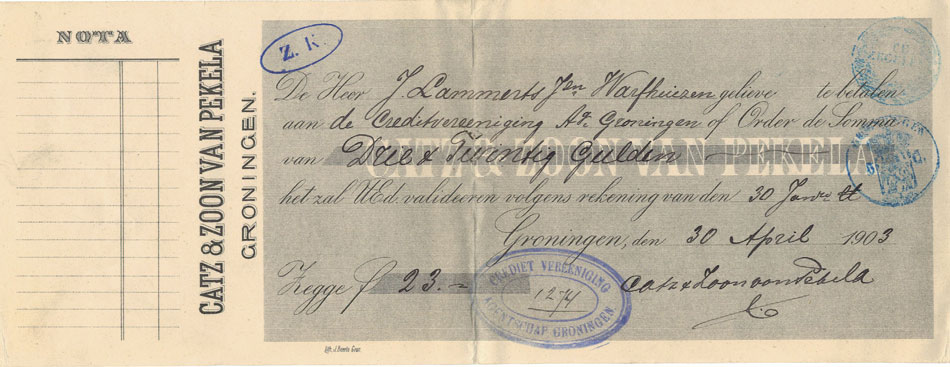 NOTA
CATZ & ZOON VAN PEKELA
GRONINGEN.
Z. K.
De Heer J. Lammerts Jzn Warfhuizen gelieve te betalen
aan de Creditvereeniging Ag. Groningen of Order de Somma
van Drie & Twintig Gulden
CATZ & ZOON VAN PEKELA
het zal UEd. valideeren volgens rekening van den 30 Janri
Groningen, den 30 April 1903
Zegge f 23.-
CREDIET VEREENIGING
AGENTSCHAP GRONINGEN
Catz & Zoon van Pekela
Lith. J. Boerts Gron.